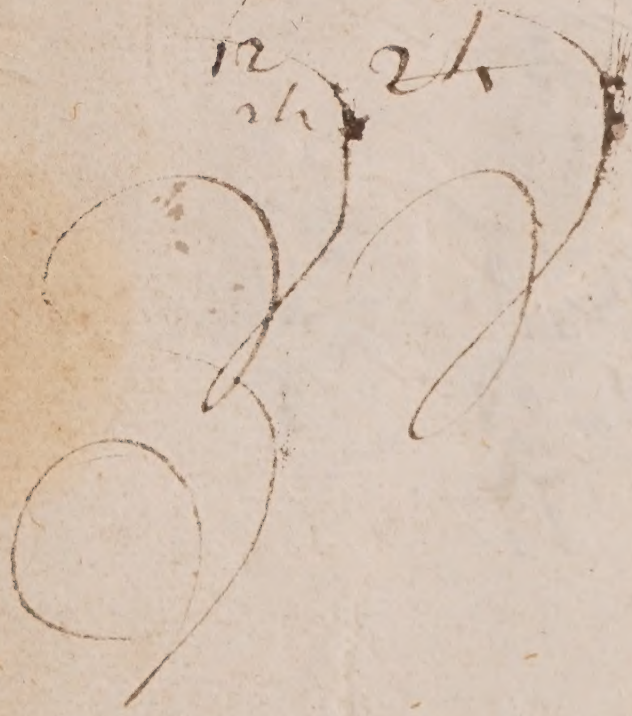 12 24
24